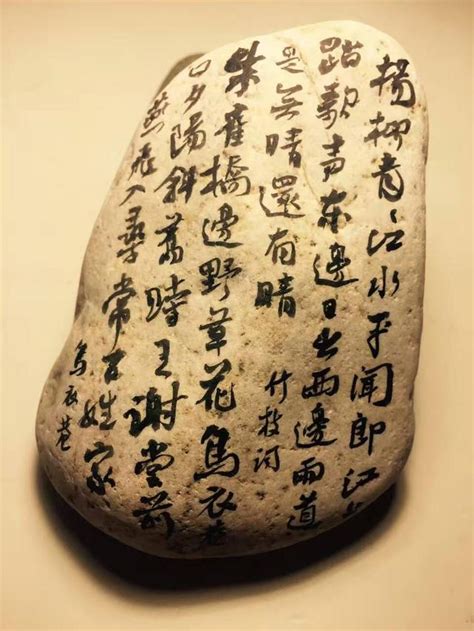 楊柳青江水平聞郎江上
踏歌声东邊日出西邊雨道
是無晴還有晴
竹枝詞
朱雀橋邊野草花烏衣巷
口夕陽斜舊時王謝堂前
燕飛入尋常百姓家
烏衣巷